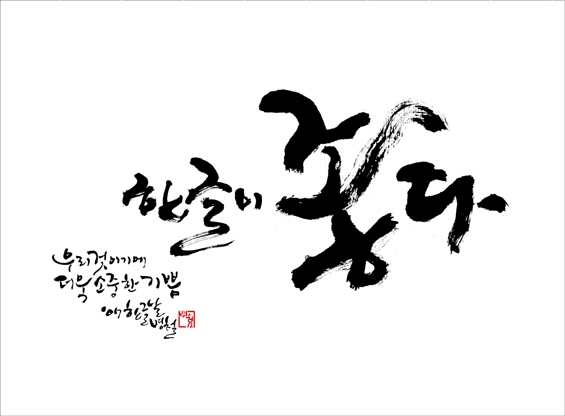 한글이 좋다
우리것이기에
더욱 소중한 기쁨
'07 한글날
병철